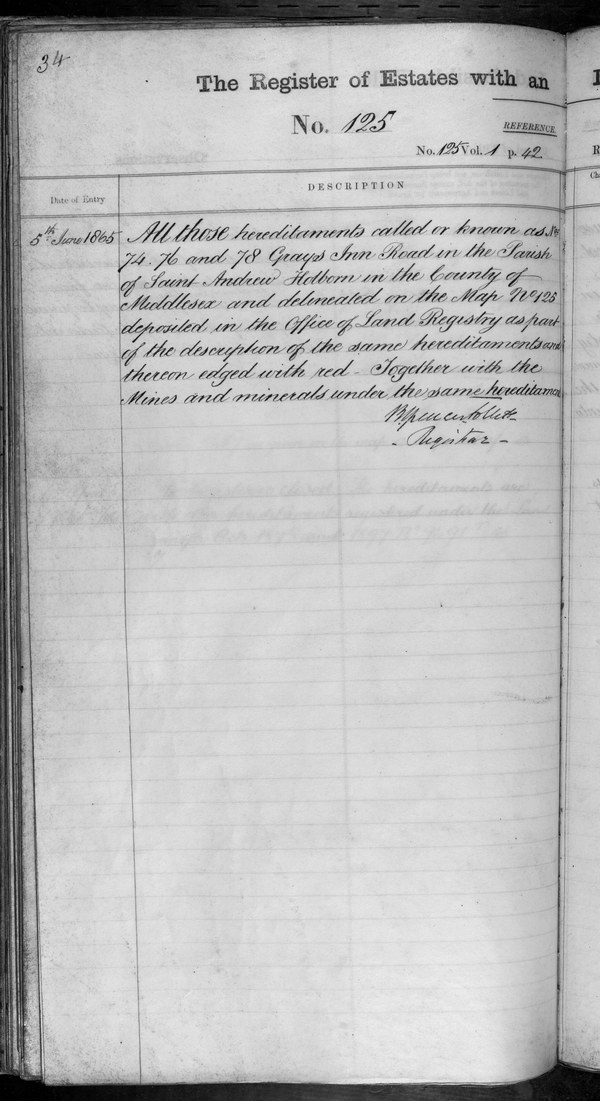 34
The Register of Estates with an
No. 125
REFERENCE.
No. 125 Vol. 1 p. 42
Date of Entry
DESCRIPTION
5th June 1865
All those hereditaments called or known as Nos
74. 76 and 78 Grays Inn Road in the Parish
of Saint Andrew Holborn in the County of
Middlesex and delineated on the Map No 125
deposited in the Office of Land Registry as part
of the description of the same hereditaments and
thereon edged with red - Together with the
Mines and minerals under the same hereditaments
- Registrar -